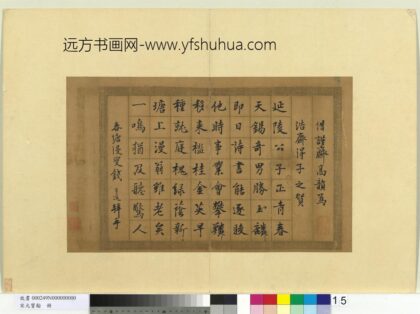 远方书画网-www.yfshuhua.com
借諧齋高韻爲
浩齋得子之賀
延陵公子正青春
天錫奇男勝玉麟
即日詩書能逐腋
他時事業會攀鱗
移來檻桂金英早
種就庭槐綠蔭新
塘上漫翁雖老矣
一鳴猶及聽驚人
春塘漫叟錢
拜手
故書 000249N000000000
宋元寶翰 冊
15